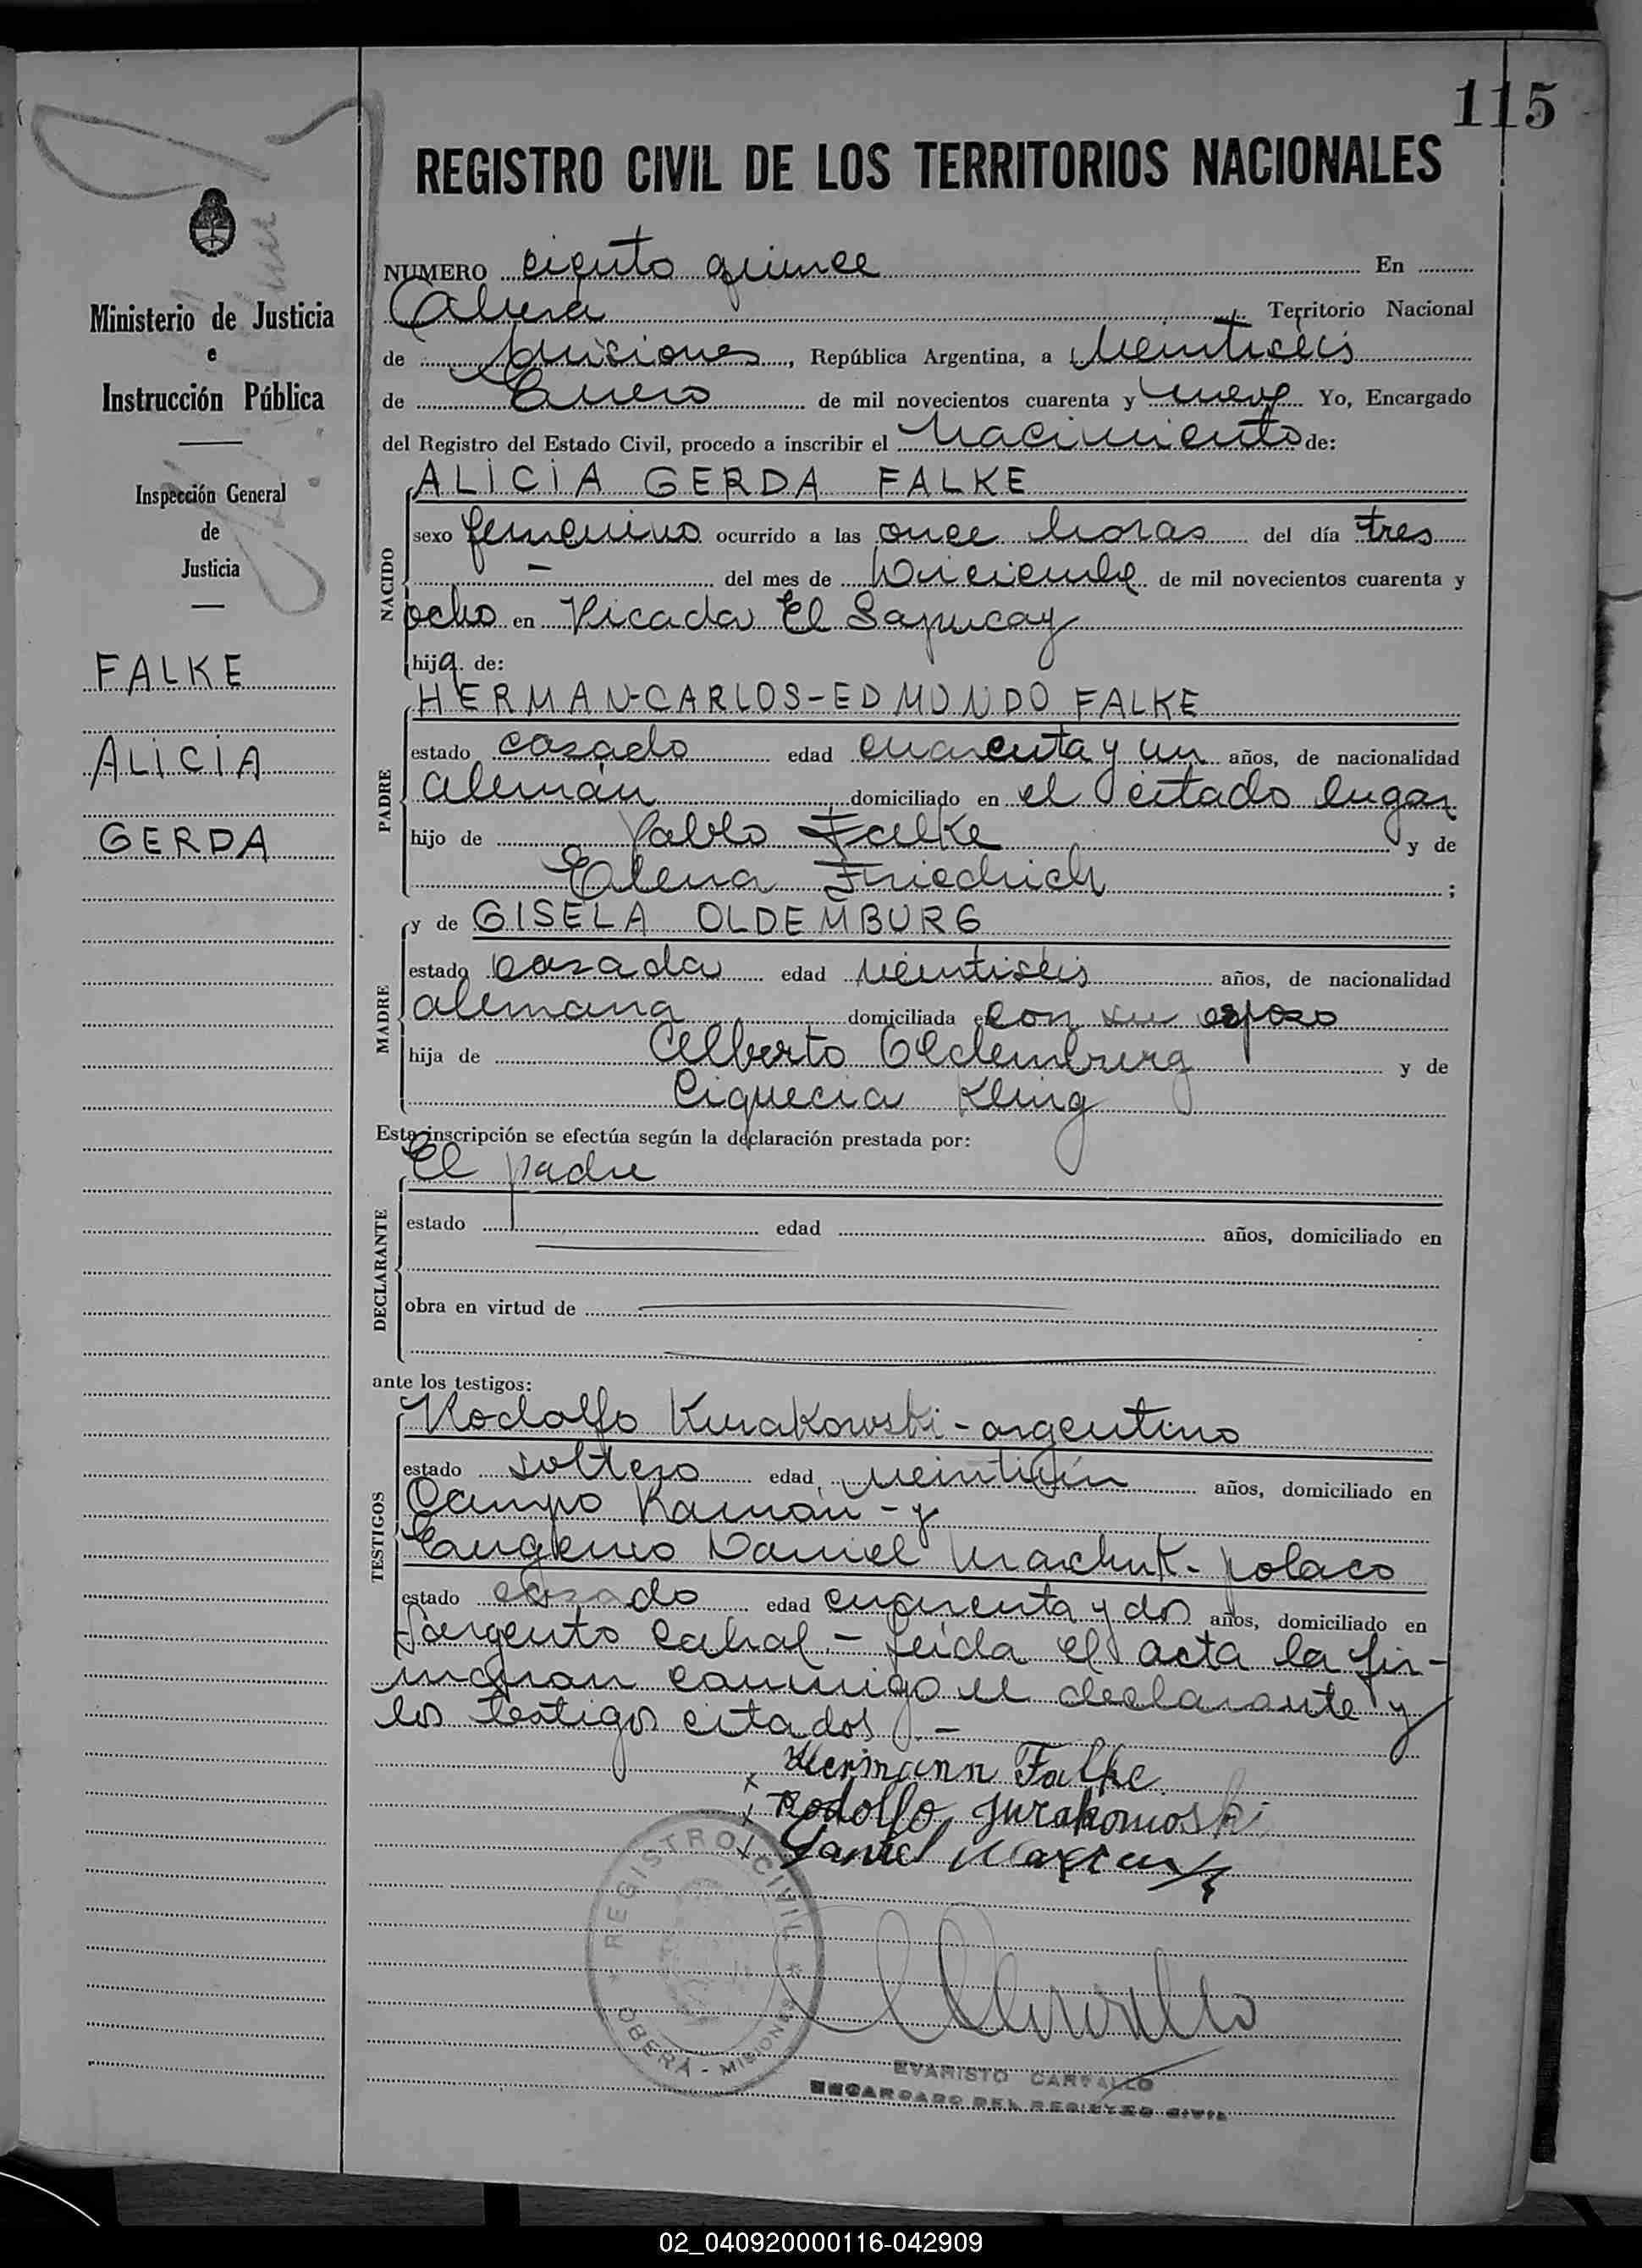 115
REGISTRO CIVIL DE LOS TERRITORIOS NACIONALES
Ministerio de Justicia
e
Instrucción Pública
Inspección General
de
Justicia
FALKE
ALICIA
GERDA
NUMERO ciento quince En
Oberá Territorio Nacional
de Misiones, República Argentina, a veintiséis
de Enero de mil novecientos cuarenta y nueve Yo, Encargado
del Registro del Estado Civil, procedo a inscribir el Nacimiento de:
NACIDO
ALICIA GERDA FALKE
sexo femenino ocurrido a las once horas del día tres
— del mes de Diciembre de mil novecientos cuarenta y
ocho en Picada El Sapucay
hija de:
PADRE
HERMAN-CARLOS-EDMUNDO FALKE
estado casado edad cuarenta y un años, de nacionalidad
alemán domiciliado en el citado lugar
hijo de Pablo Falke y de
Elena Friedrich ;
MADRE
y de GISELA OLDEMBURG
estado casada edad veintiséis años, de nacionalidad
alemana domiciliada con su esposo
hija de Alberto Oldemburg y de
Kling
Esta inscripción se efectúa según la declaración prestada por:
DECLARANTE
El padre
estado edad años, domiciliado en
obra en virtud de
ante los testigos:
TESTIGOS
Rodolfo Kurakowski - argentino
estado soltero edad veintiún años, domiciliado en
Campo Ramón - y
Eugenio Daniel Marchuk - polaco
estado casado edad cuarenta y dos años, domiciliado en
Sargento Cabral - Leída el acta la fir-
maron conmigo el declarante y
los testigos citados. -
Hermann Falke
x Rodolfo
x Daniel
REGISTRO CIVIL
OBERÁ - MISIONES
EVARISTO CARVALLO
ENCARGADO DEL REGISTRO CIVIL
02_040920000116-042909